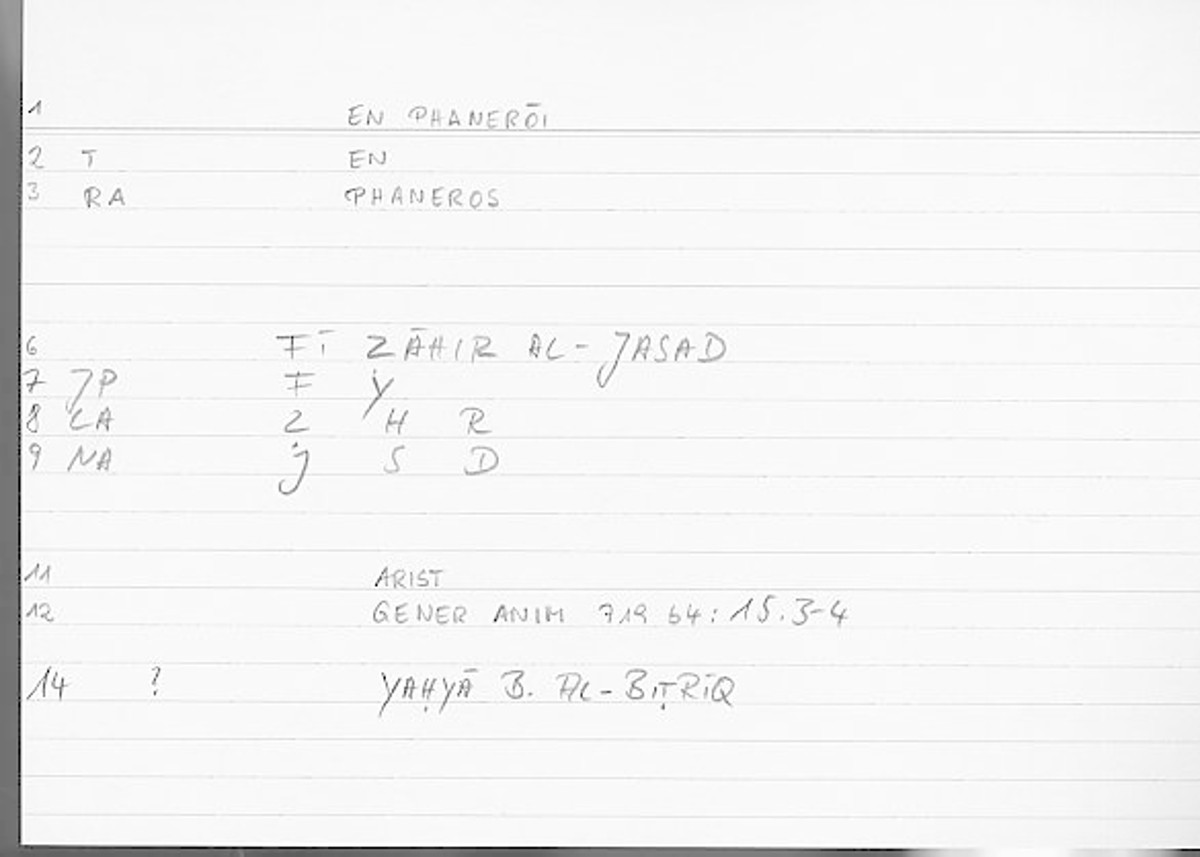 1 EN PHANERŌI
2 T EN
3 RA PHANEROS
6 FĪ ZĀHIR AL-JASAD
7 JP F Y
8 LA Z H R
9 NA J S D
11 ARIST
12 GENER ANIM 719 b4: 15.3-4
14 ? YAḤYĀ B. AL-BIṬRĪQ